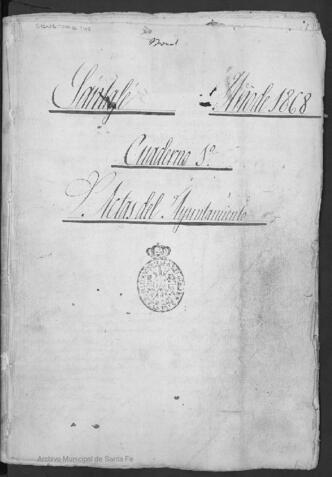 Santafé Año de 1868
Cuaderno 1º
Actas del Ayuntamiento
Archivo Municipal de Santa Fe